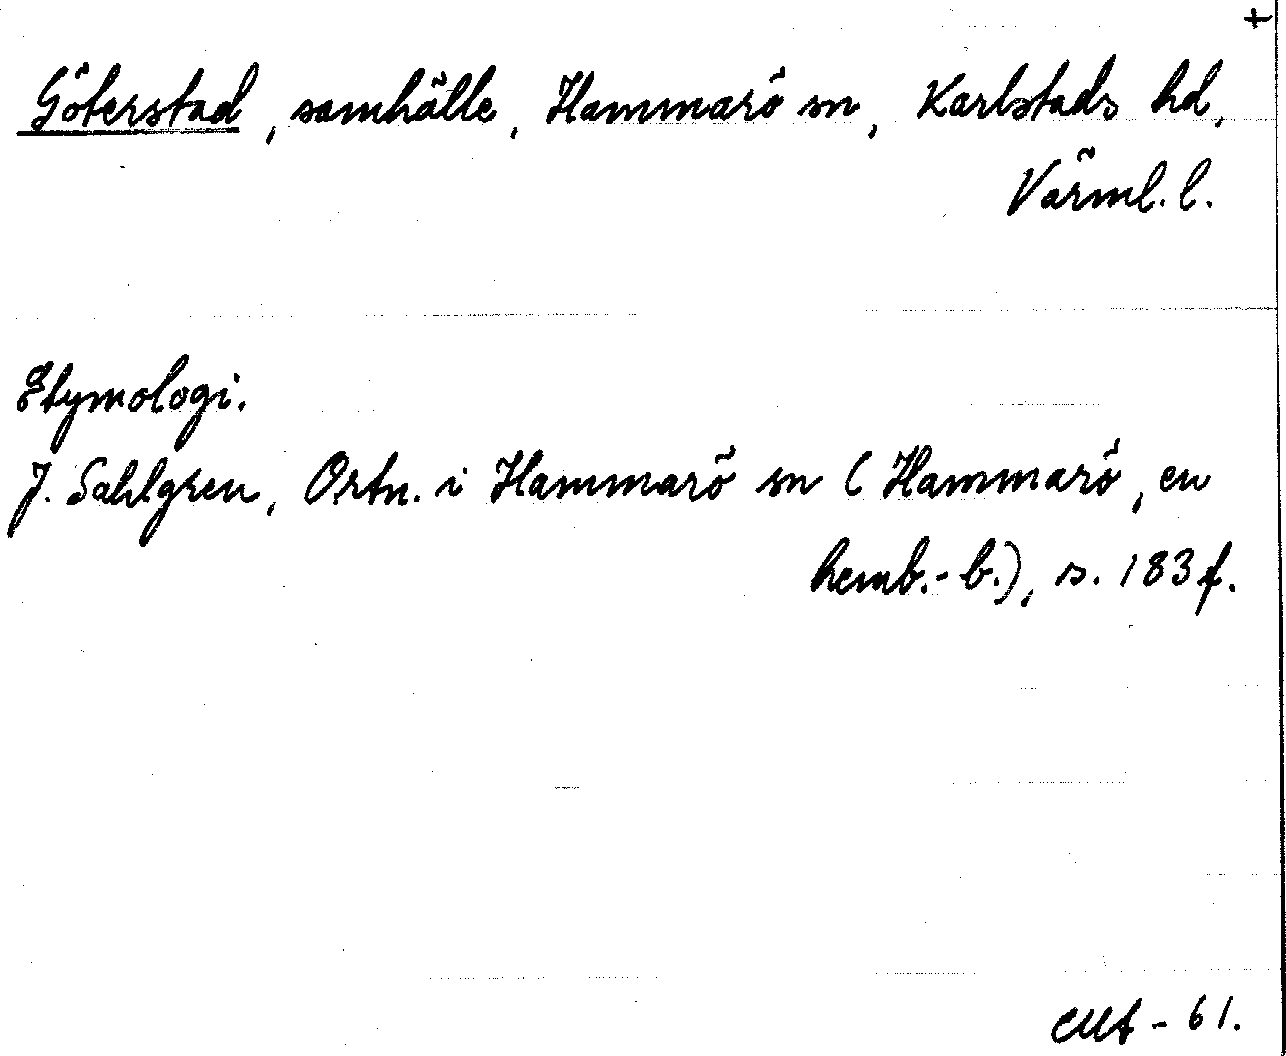 +
Göterstad, samhälle, Hammarö sn, Karlstads hd,
Värml. l.
Etymologi.
J. Sahlgren, Ortn. i Hammarö sn (Hammarö, en
hemb.-b.), s. 183 f.
-61.